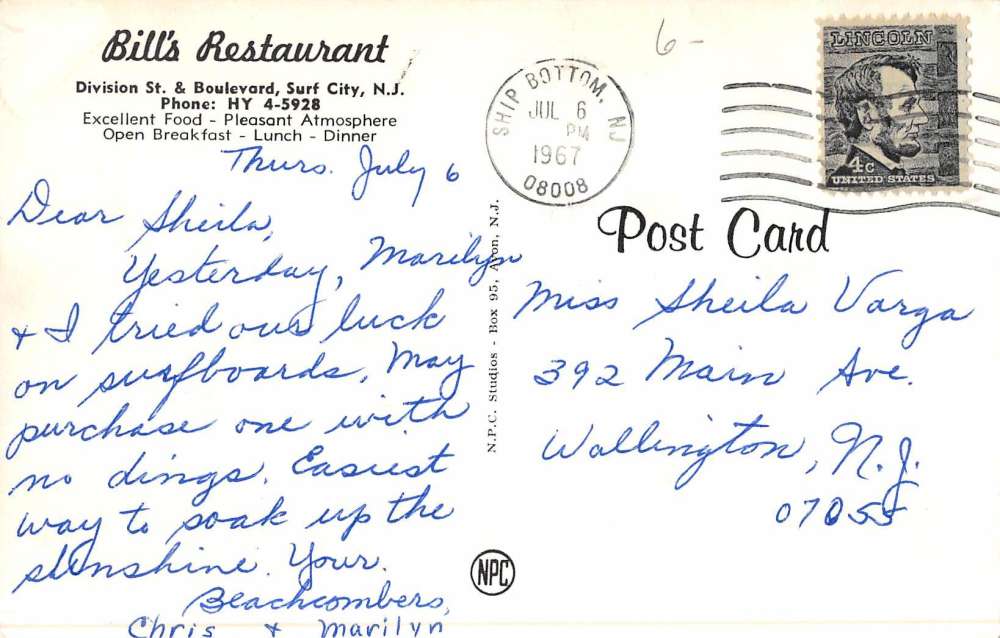 Bill's Restaurant
Division St. & Boulevard, Surf City, N.J.
Phone: HY 4-5928
Excellent Food - Pleasant Atmosphere
Open Breakfast - Lunch - Dinner
Thurs. July 6
Dear Sheila,
Yesterday, Marilyn
+ I tried our luck
on surfboards. May
purchase one with
no dings. Easiest
way to soak up the
sunshine. Your
Beachcombers,
Chris + Marilyn
N.P.C. Studios - Box 95, Avon, N.J.
NPC
6-
SHIP BOTTOM, NJ
JUL 6
PM
1967
08008
LINCOLN
4c
UNITED STATES
Post Card
Miss Sheila Varga
392 Main Ave.
Wallington, N.J.
07055